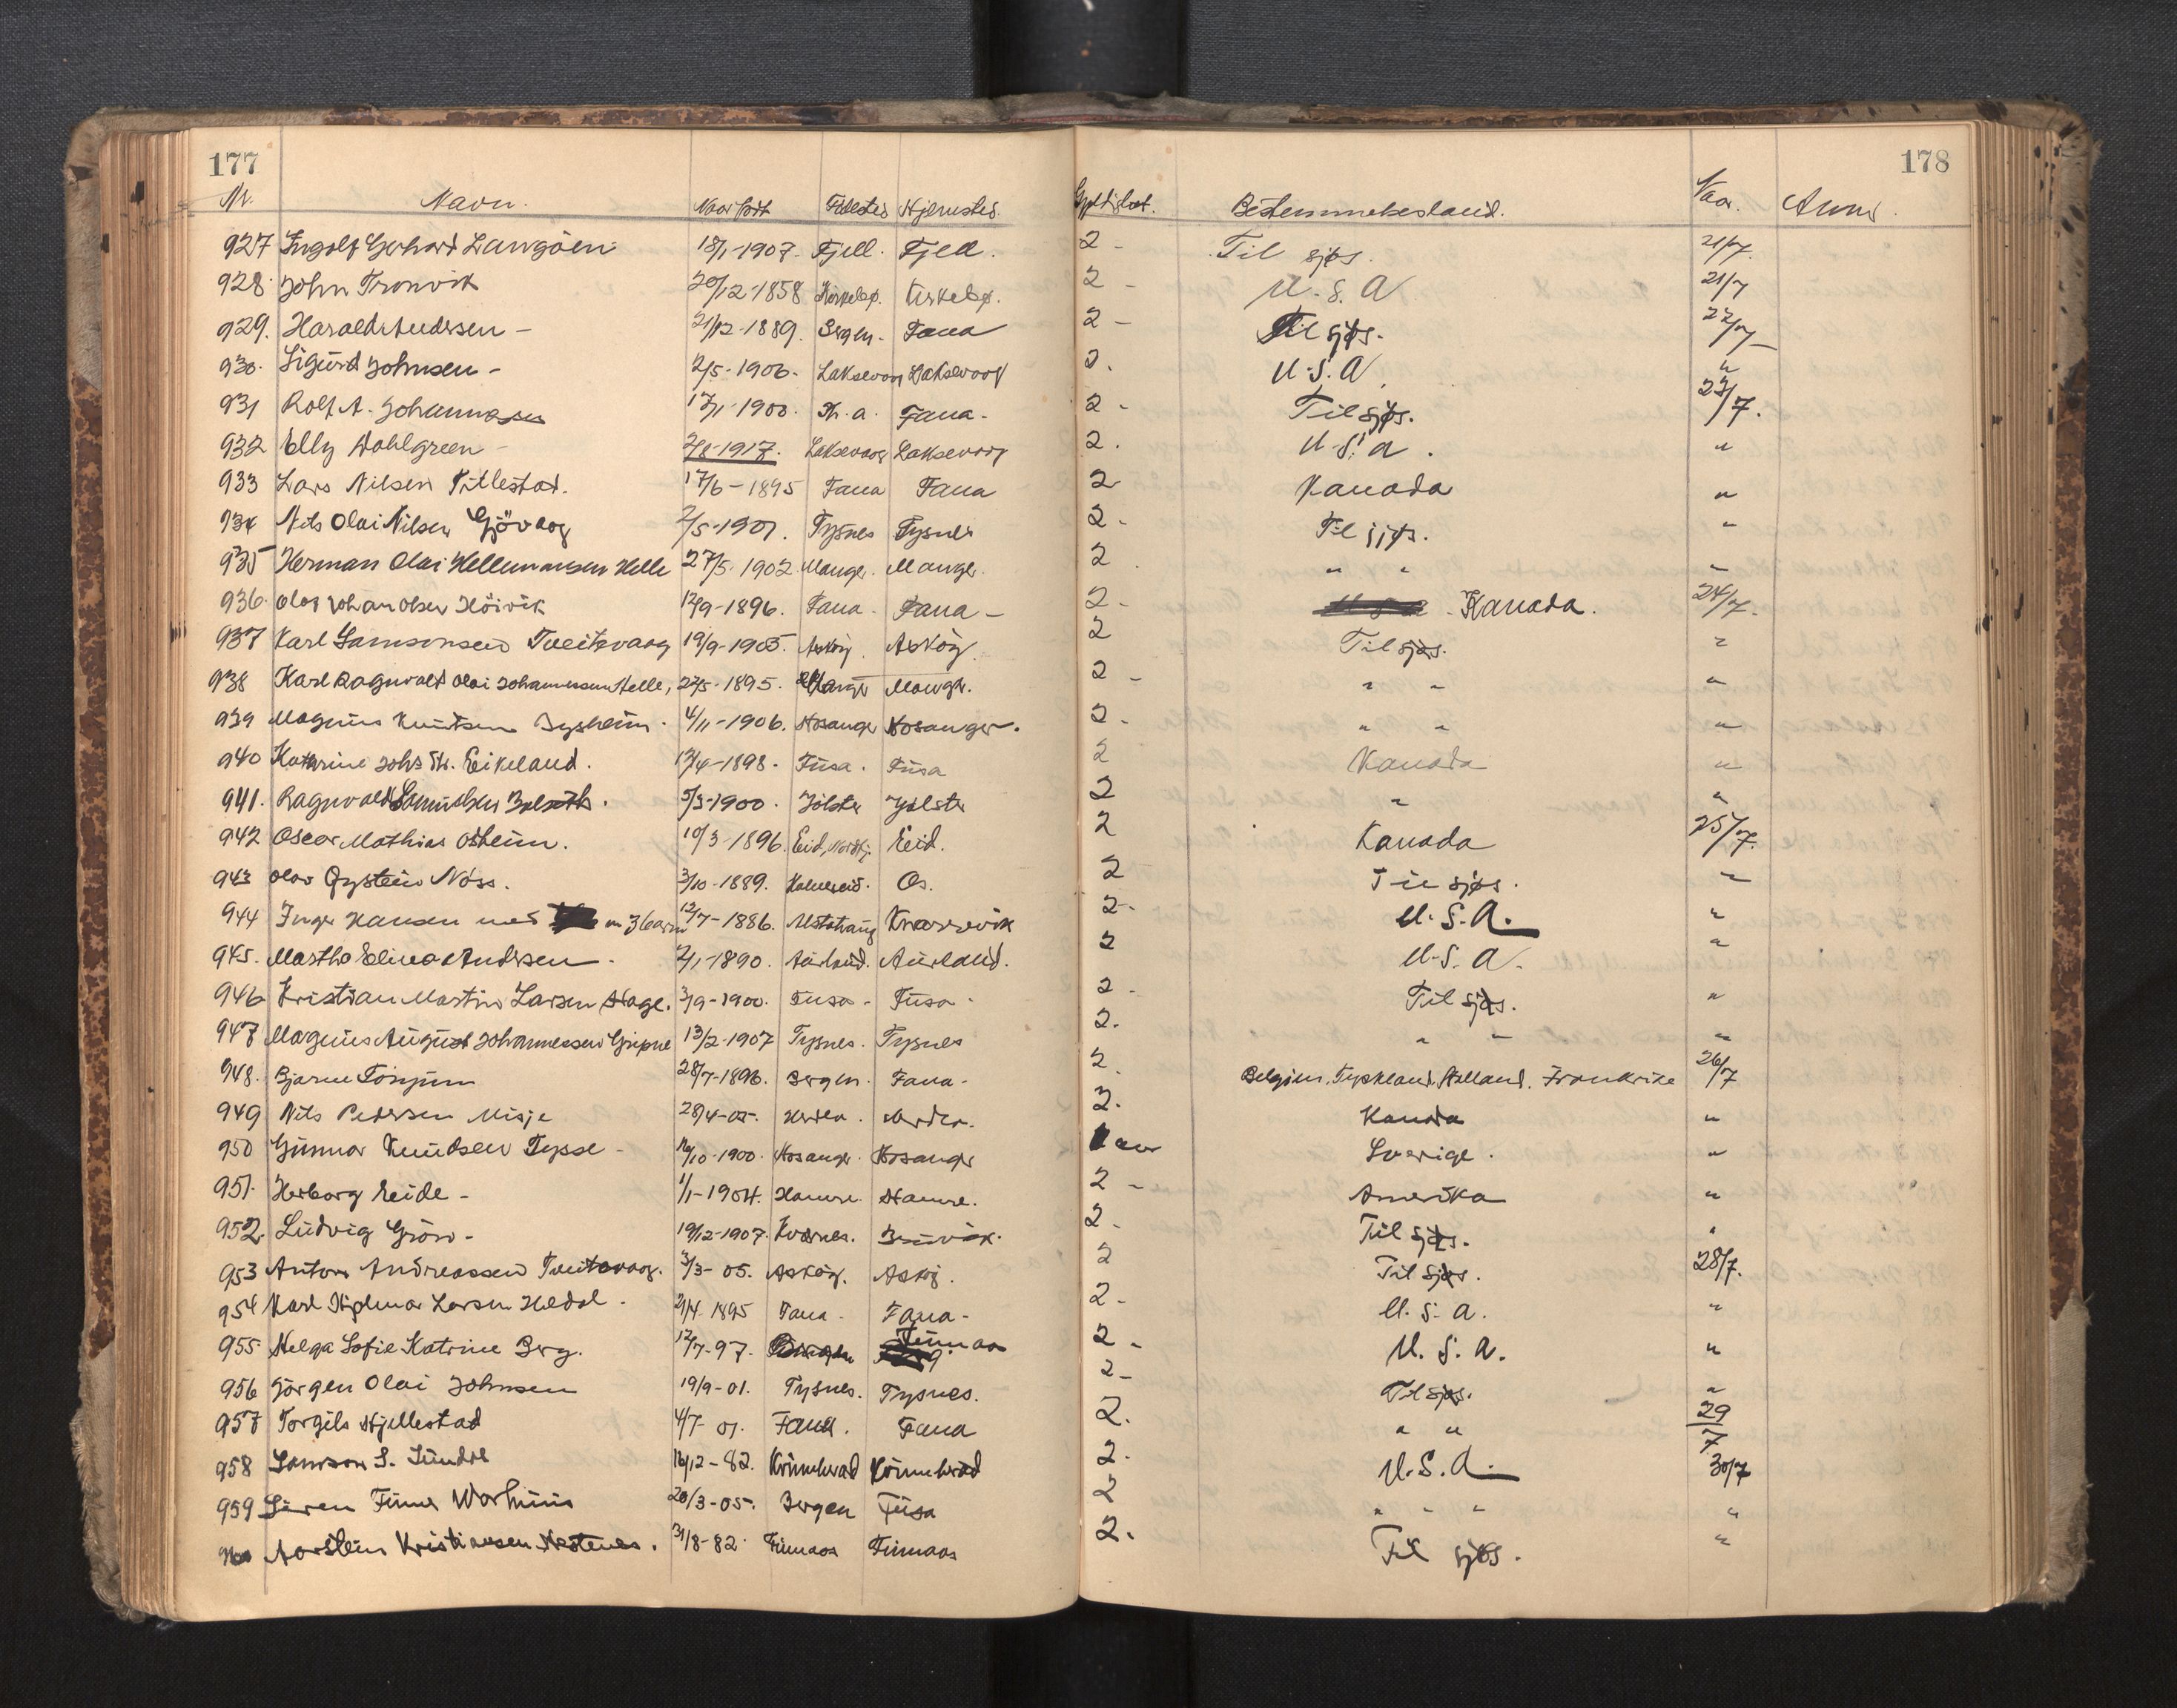 177 178
Nr. Navn. Naar født Fødested Hjemsted. Bestemmelsesland. Naar. Anm.
927 Ingolf Gerhard Langöen 18/1-1907. Fjell. Fjell. 2 - Til sjøs. 21/7.
928. John Tronvik 20/12-1858 Kirkebø. Kirkebø. 2 - U.S.A 21/7
929. Harald Andersen - 21/12-1889. Bergen. Fana 2 - Til sjøs. 22/7
930. Sigurd Johnsen - 2/5-1906. Laksevaag Laksevaag 2. U.S.A. "
931 Rolf A. Johannesen 1900. Fana. 2 - Til sjøs. 23/7.
932 Elly Dahlgreen - 2/8-1917. Laksevaag Laksevaag 2. U.S.A. "
933 Lars Nilsen Titlestad. 17/6-1895 Fana Fana 2 Kanada "
934 Nils Olai Nilsen Gjövaag 2/5-1901. Tysnes Tysnes 2. Til sjøs. "
935 Herman Olai Hellemansen Helle 27/5-1902. Manger. Manger. 2. " " "
936. Olav Johan Olsen Höivik 12/9-1896. Fana. Fana - 2 - Kanada. 24/7.
937 Karl Samsonsen Tveitevaag 19/9-1905. Asköy. Asköy. 2 Til sjøs. "
938 Karl Ragnvald Olai Johannessen Helle, 27/5-1895. Manger Manger. 2 - " " "
939 Magnus Knutsen Bysheim. 4/11-1906. Hosanger Hosanger. 2 - " " "
940 Katrine Johs dtr. Eikeland. 13/4-1898. Fusa. Fusa 2 Kanada "
941. Ragnvald 5/3-1900. Jölster Jölster 2 " "
942 Oscar Mathias Osheim. 10/3-1896. Eid, Nordfj. Eid. 2 Kanada 25/7.
943 Olav Øystein Nöss. 3/10-1889. Os. 2 Til sjøs. "
944 Inger Hansen med 3 barn 12/7-1886. Knarrevik 2 - U.S.A. "
945. Martha Elina Andersen. 2/1-1890. Aurland. Aurland. 2 U.S.A. "
946 Kristian Martin Larsen Hage. 3/9-1900. Fusa - Fusa - 2 - Til sjøs. "
947 Magnus August Johannessen Gripne 13/2-1907 Tysnes. Tysnes 2. " " "
948. Bjarne Tönjum 28/7-1896. Bergen. Fana. 2. Belgien, Tyskland, Holland. Frankrike 26/7
949 Nils Pedersen Misje 28/4-05. Herdla. Herdla. 2. Kanada "
950 Gunnar Knudsen Tysse - 16/10-1900. Hosanger. Hosanger 1 aar Sverige. "
951. Herborg Eide - 1/1-1904. Hamre. Hamre. 2 - Amerika "
952. Ludvig Grön - 19/12-1907. Kvernes. 2 - Til sjøs. "
953 Anton Andreassen Tveitevaag. 3/3-05. Asköy. Asköy. 2 Til sjøs. 28/7.
954 Karl Hjalmar Larsen Heldal. 21/4-1895 Fana - Fana - 2 - U.S.A. "
955 Helga Sofie Katrine Berg. 12/7-97. Finnaas 2 - U.S.A. "
956 Jörgen Olai Johnsen 19/9-01. Tysnes. Tysnes. 2 - Til sjøs. "
957 Torgils Hjellestad 4/7 01. Fana. Fana 2. " " 29/7
958 Samson S. Sundal 16/12-82. Kvinnherad Kvinnherad 2. U.S.A. 30/7
959 Sören 20/3-05. Bergen Fusa 2 " " " "
960 Torstein Kristiansen. 31/8-82. Finnaas Finnaas 2. Til sjøs. "